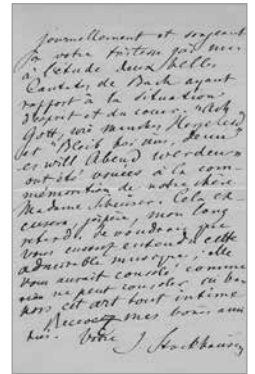 journellement et songeant
à votre tristesse j'ai mis
à l'étude deux belles
Cantates de Bach ayant
rapport à la situation
d'esprit et du coeur. "Ach
Gott, wie manches Herzeleid
et "Bleib bei uns, denn
es will Abend werden"
ont été vouées à la com-
mémoration de notre chère
Madame Cela ex-
cusera, j'espère, mon long
retard. Je voudrais que
vous eussiez entendu cette
admirable musique; elle
vous aurait consolé, comme
rien ne peut consoler, ou
hors cet art tout intime
Recevez mes bons
Votre J Stockhausen